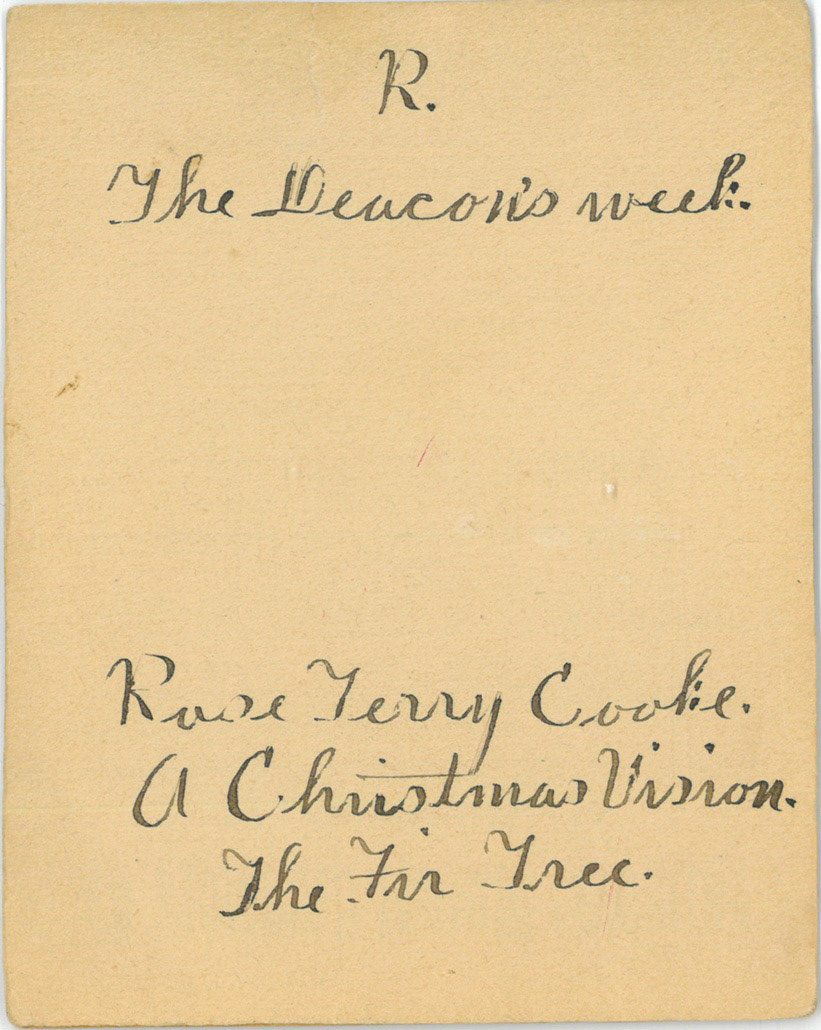 R.
The Deacon's week.
Rose Terry Cooke.
A Christmas Vision.
The Fir Tree.